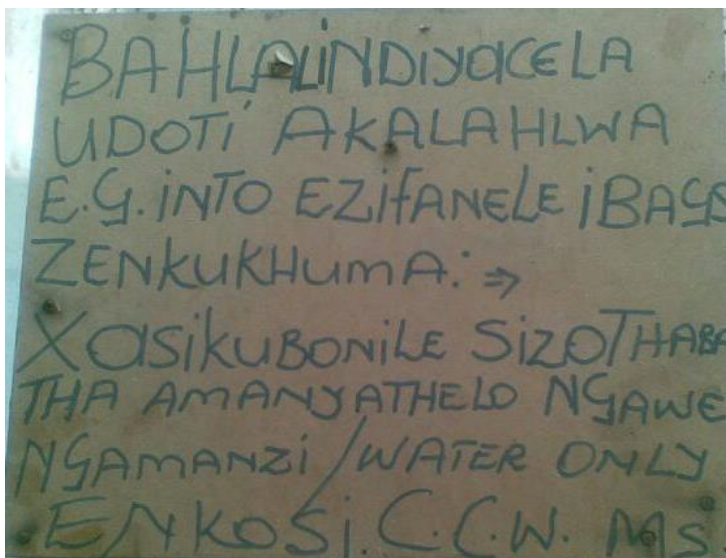 BAHLALI NDIYACELA
UDOTI AKALAHLWA
E.G. INTO EZIFANELE IBAGS
ZENKUKHUMA: ⇒
XASIKUBONILE SIZOTHABA
THA AMANYATHELO NGAWE
NGAMANZI / WATER ONLY
ENKOSI. C.C.W. Ms